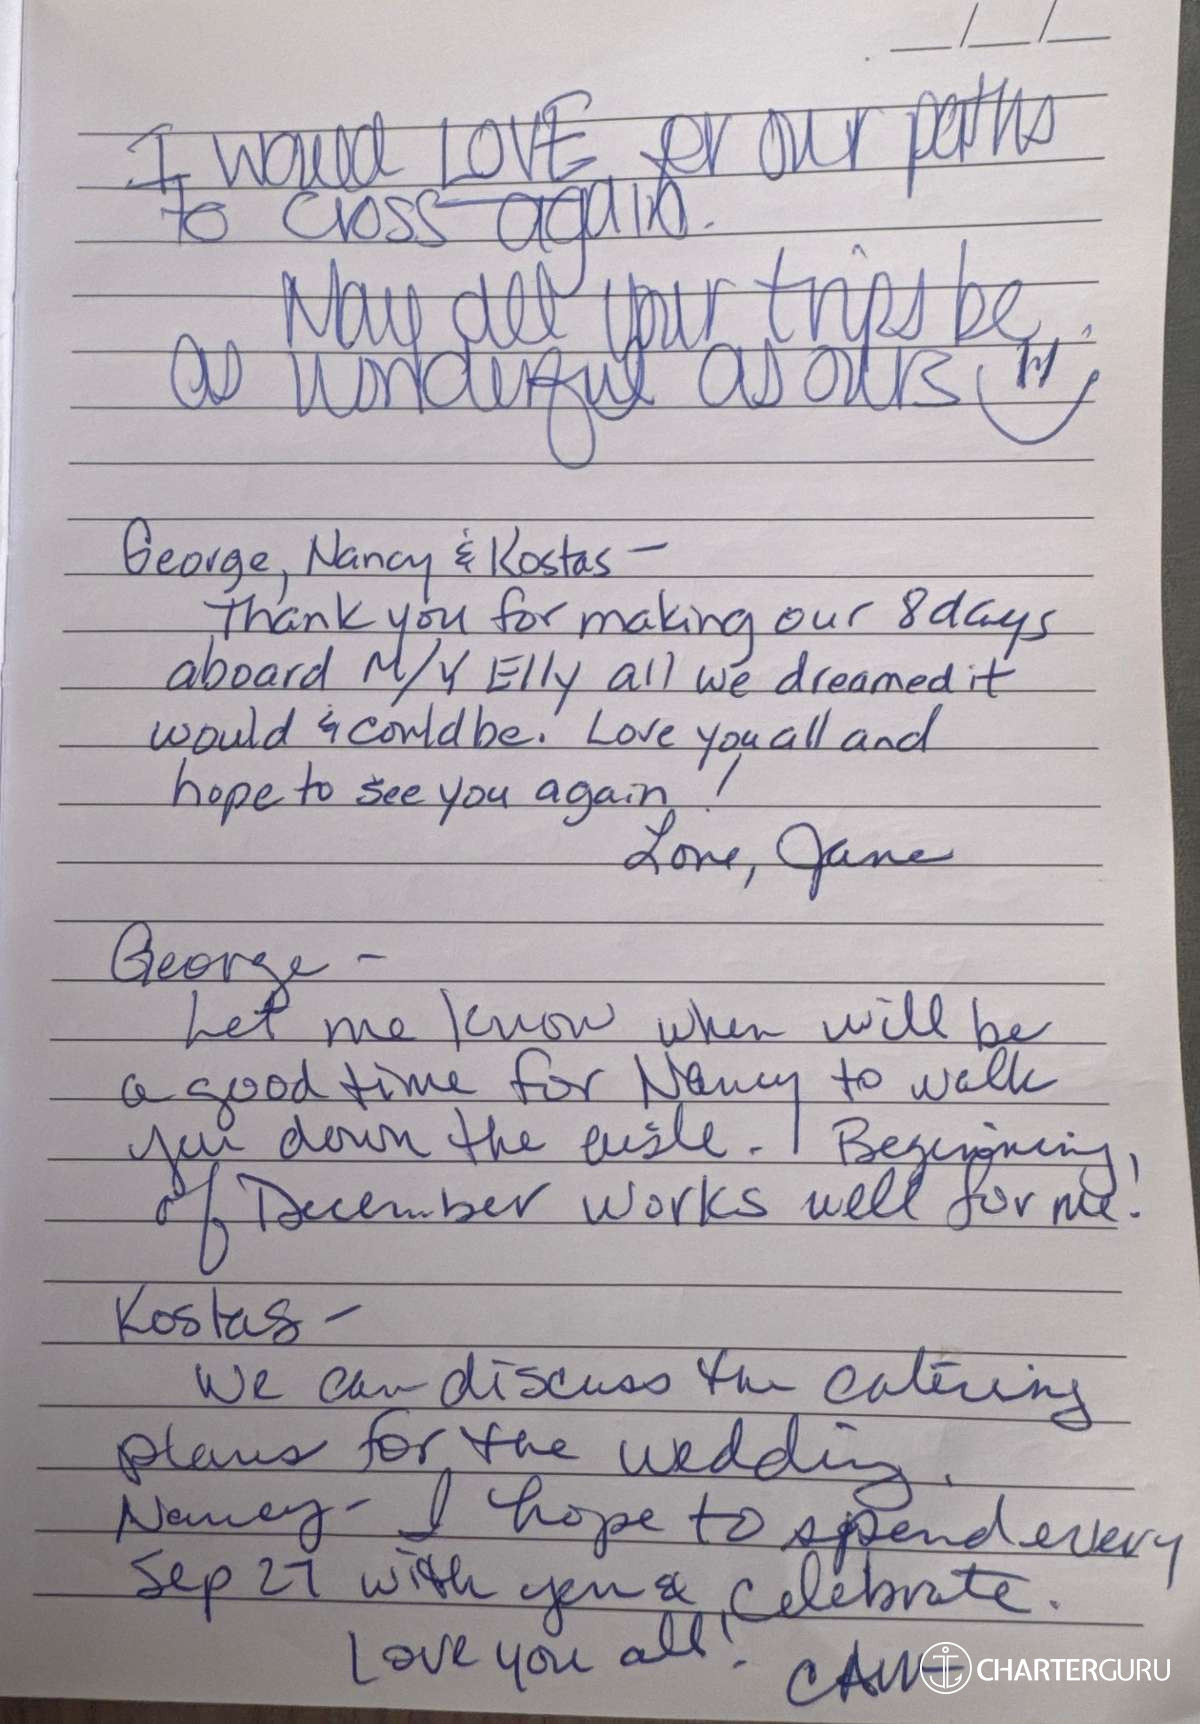 __/__/__
I would LOVE for our paths
to cross again.
May all your trips be
as wonderful as ours
George, Nancy & Kostas —
Thank you for making our 8 days
aboard M/Y Elly all we dreamed it
would & could be. Love you all and
hope to see you again!
Love, Jane
George -
Let me know when will be
a good time for Nancy to walk
you down the aisle. Beginning
of December works well for me!
Kostas -
We can discuss the catering
plans for the wedding.
Nancy - I hope to spend every
Sep 27 with you & celebrate.
Love you all!
CHARTERGURU